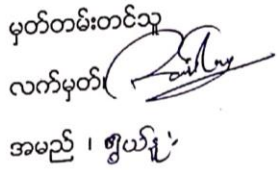 မှတ်တမ်းတင်သူ
လက်မှတ်၊
အမည် ၊ ရွှယ်နူး